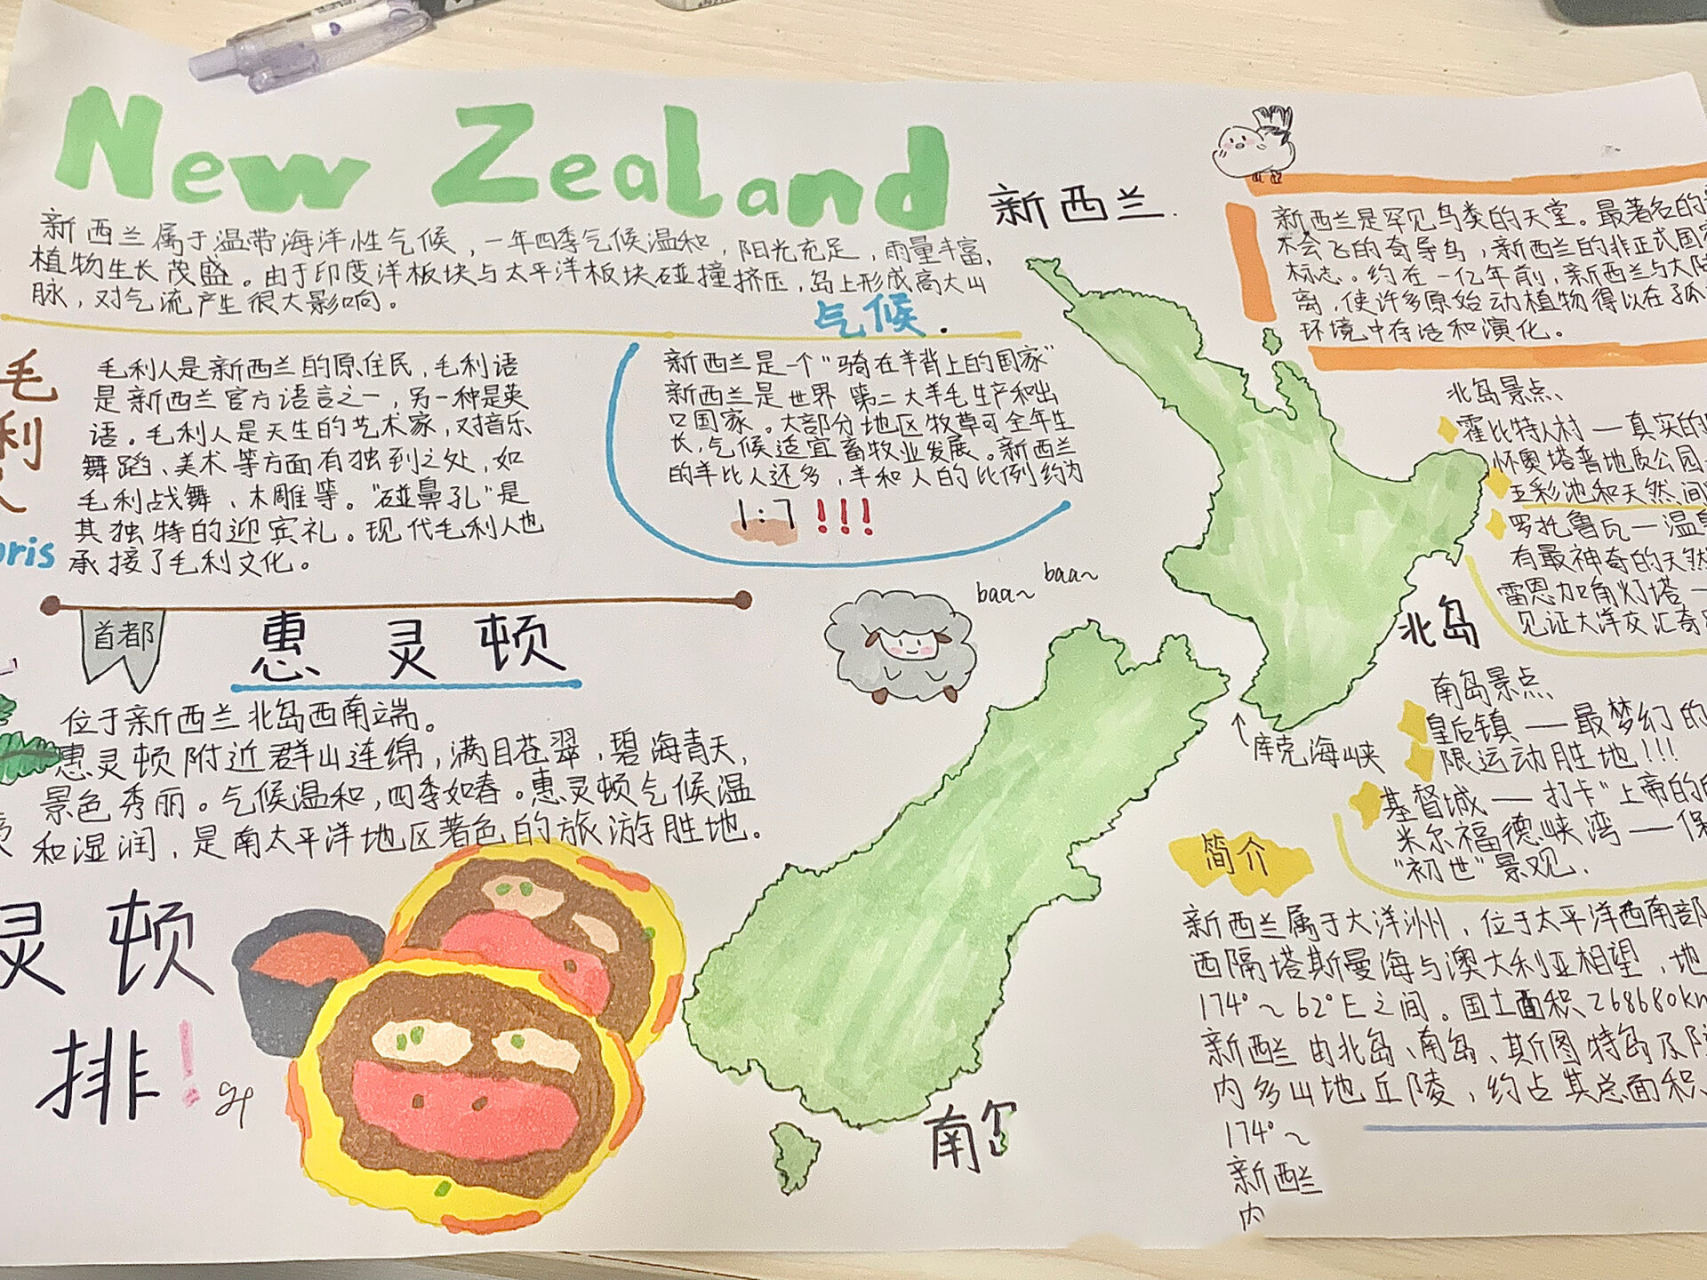 New Zealand
新西兰
新西兰属于温带海洋性气候，一年四季气候温和，阳光充足，雨量丰富，
植物生长茂盛。由于印度洋板块与太平洋板块碰撞挤压，岛上形成高大山
脉，对气流产生很大影响。
气候
毛利人
oris
毛利人是新西兰的原住民，毛利语
是新西兰官方语言之一，另一种是英
语。毛利人是天生的艺术家，对音乐
舞蹈、美术等方面有独到之处，如
毛利战舞、木雕等。"碰鼻孔"是
其独特的迎宾礼。现代毛利人也
承接了毛利文化。
新西兰是一个"骑在羊背上的国家"
新西兰是世界第二大羊毛生产和出
口国家。大部分地区牧草可全年生
长，气候适宜畜牧业发展。新西兰
的羊比人还多，羊和人的比例约为
1:7!!!
baa~ baa~
首都
惠灵顿
位于新西兰北岛西南端。
惠灵顿附近群山连绵，满目苍翠，碧海青天，
景色秀丽。气候温和，四季如春。惠灵顿气候温
和湿润，是南太平洋地区著色的旅游胜地。
灵顿
排!
北岛
南
库克海峡
新西兰是罕见鸟类的天堂。最著名的
不会飞的奇异鸟，新西兰的非正式国家
标志。约在一亿年前，新西兰与大陆
离，使许多原始动植物得以在孤
环境中存活和演化。
北岛景点、
霍比特人村—真实的
怀奥塔普地质公园
五彩池和天然间
罗托鲁瓦—温
有最神奇的天然
雷恩加角灯塔—
见证大洋交汇奇
南岛景点、
皇后镇—最梦幻的
限运动胜地!!!
基督城—打卡"上帝的
米尔福德峡湾—保
"初世"景观.
简介
新西兰属于大洋洲，位于太平洋西南部
西隔塔斯曼海与澳大利亚相望，地
174°~62°E之间。国土面积268680km
新西兰由北岛、南岛、斯图特岛及
内多山地丘陵，约占其总面积
174°~
新西兰
内